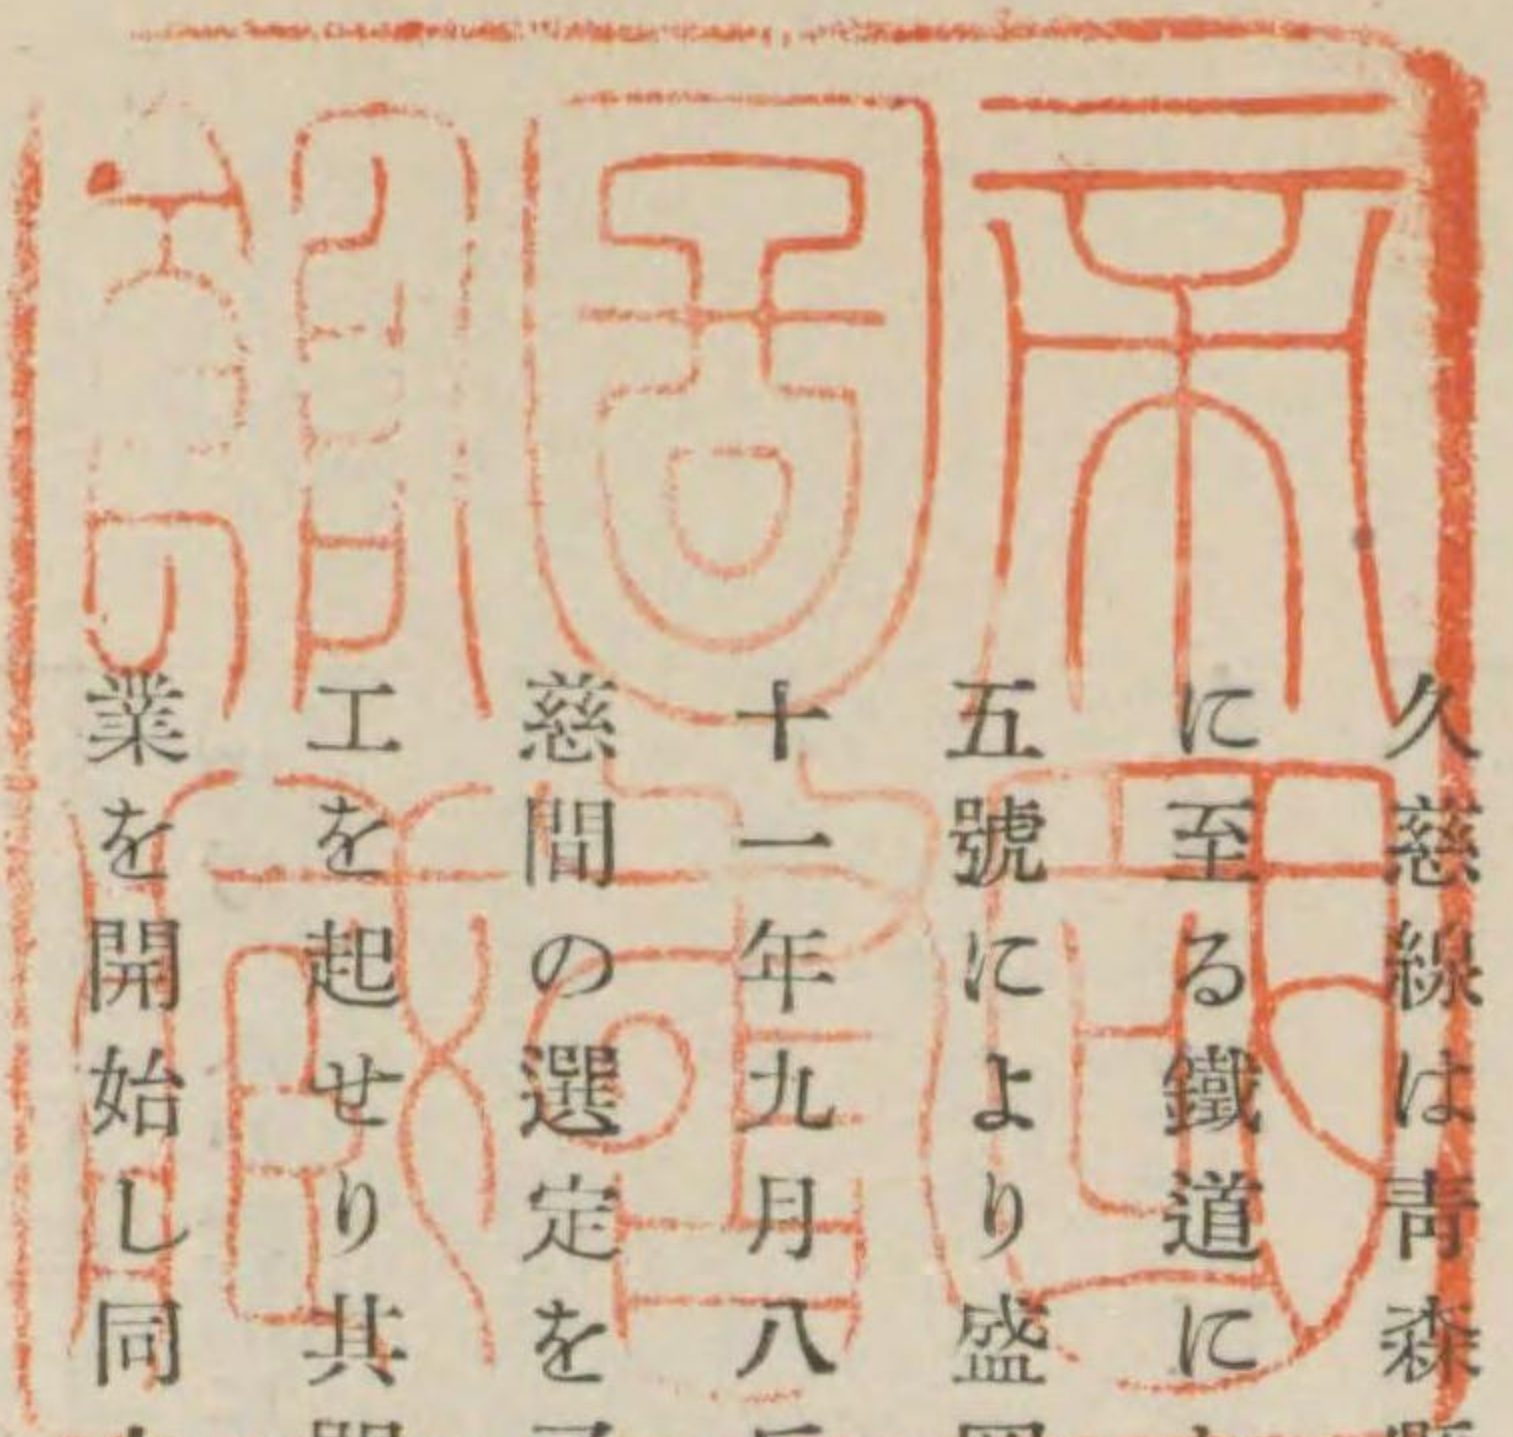 久慈線は靑森縣
に至る鐵道に
五號により盛岡
十一年九月八
慈間の選定を
工を起せり共
業を開始し同
帝國
圖書
館藏